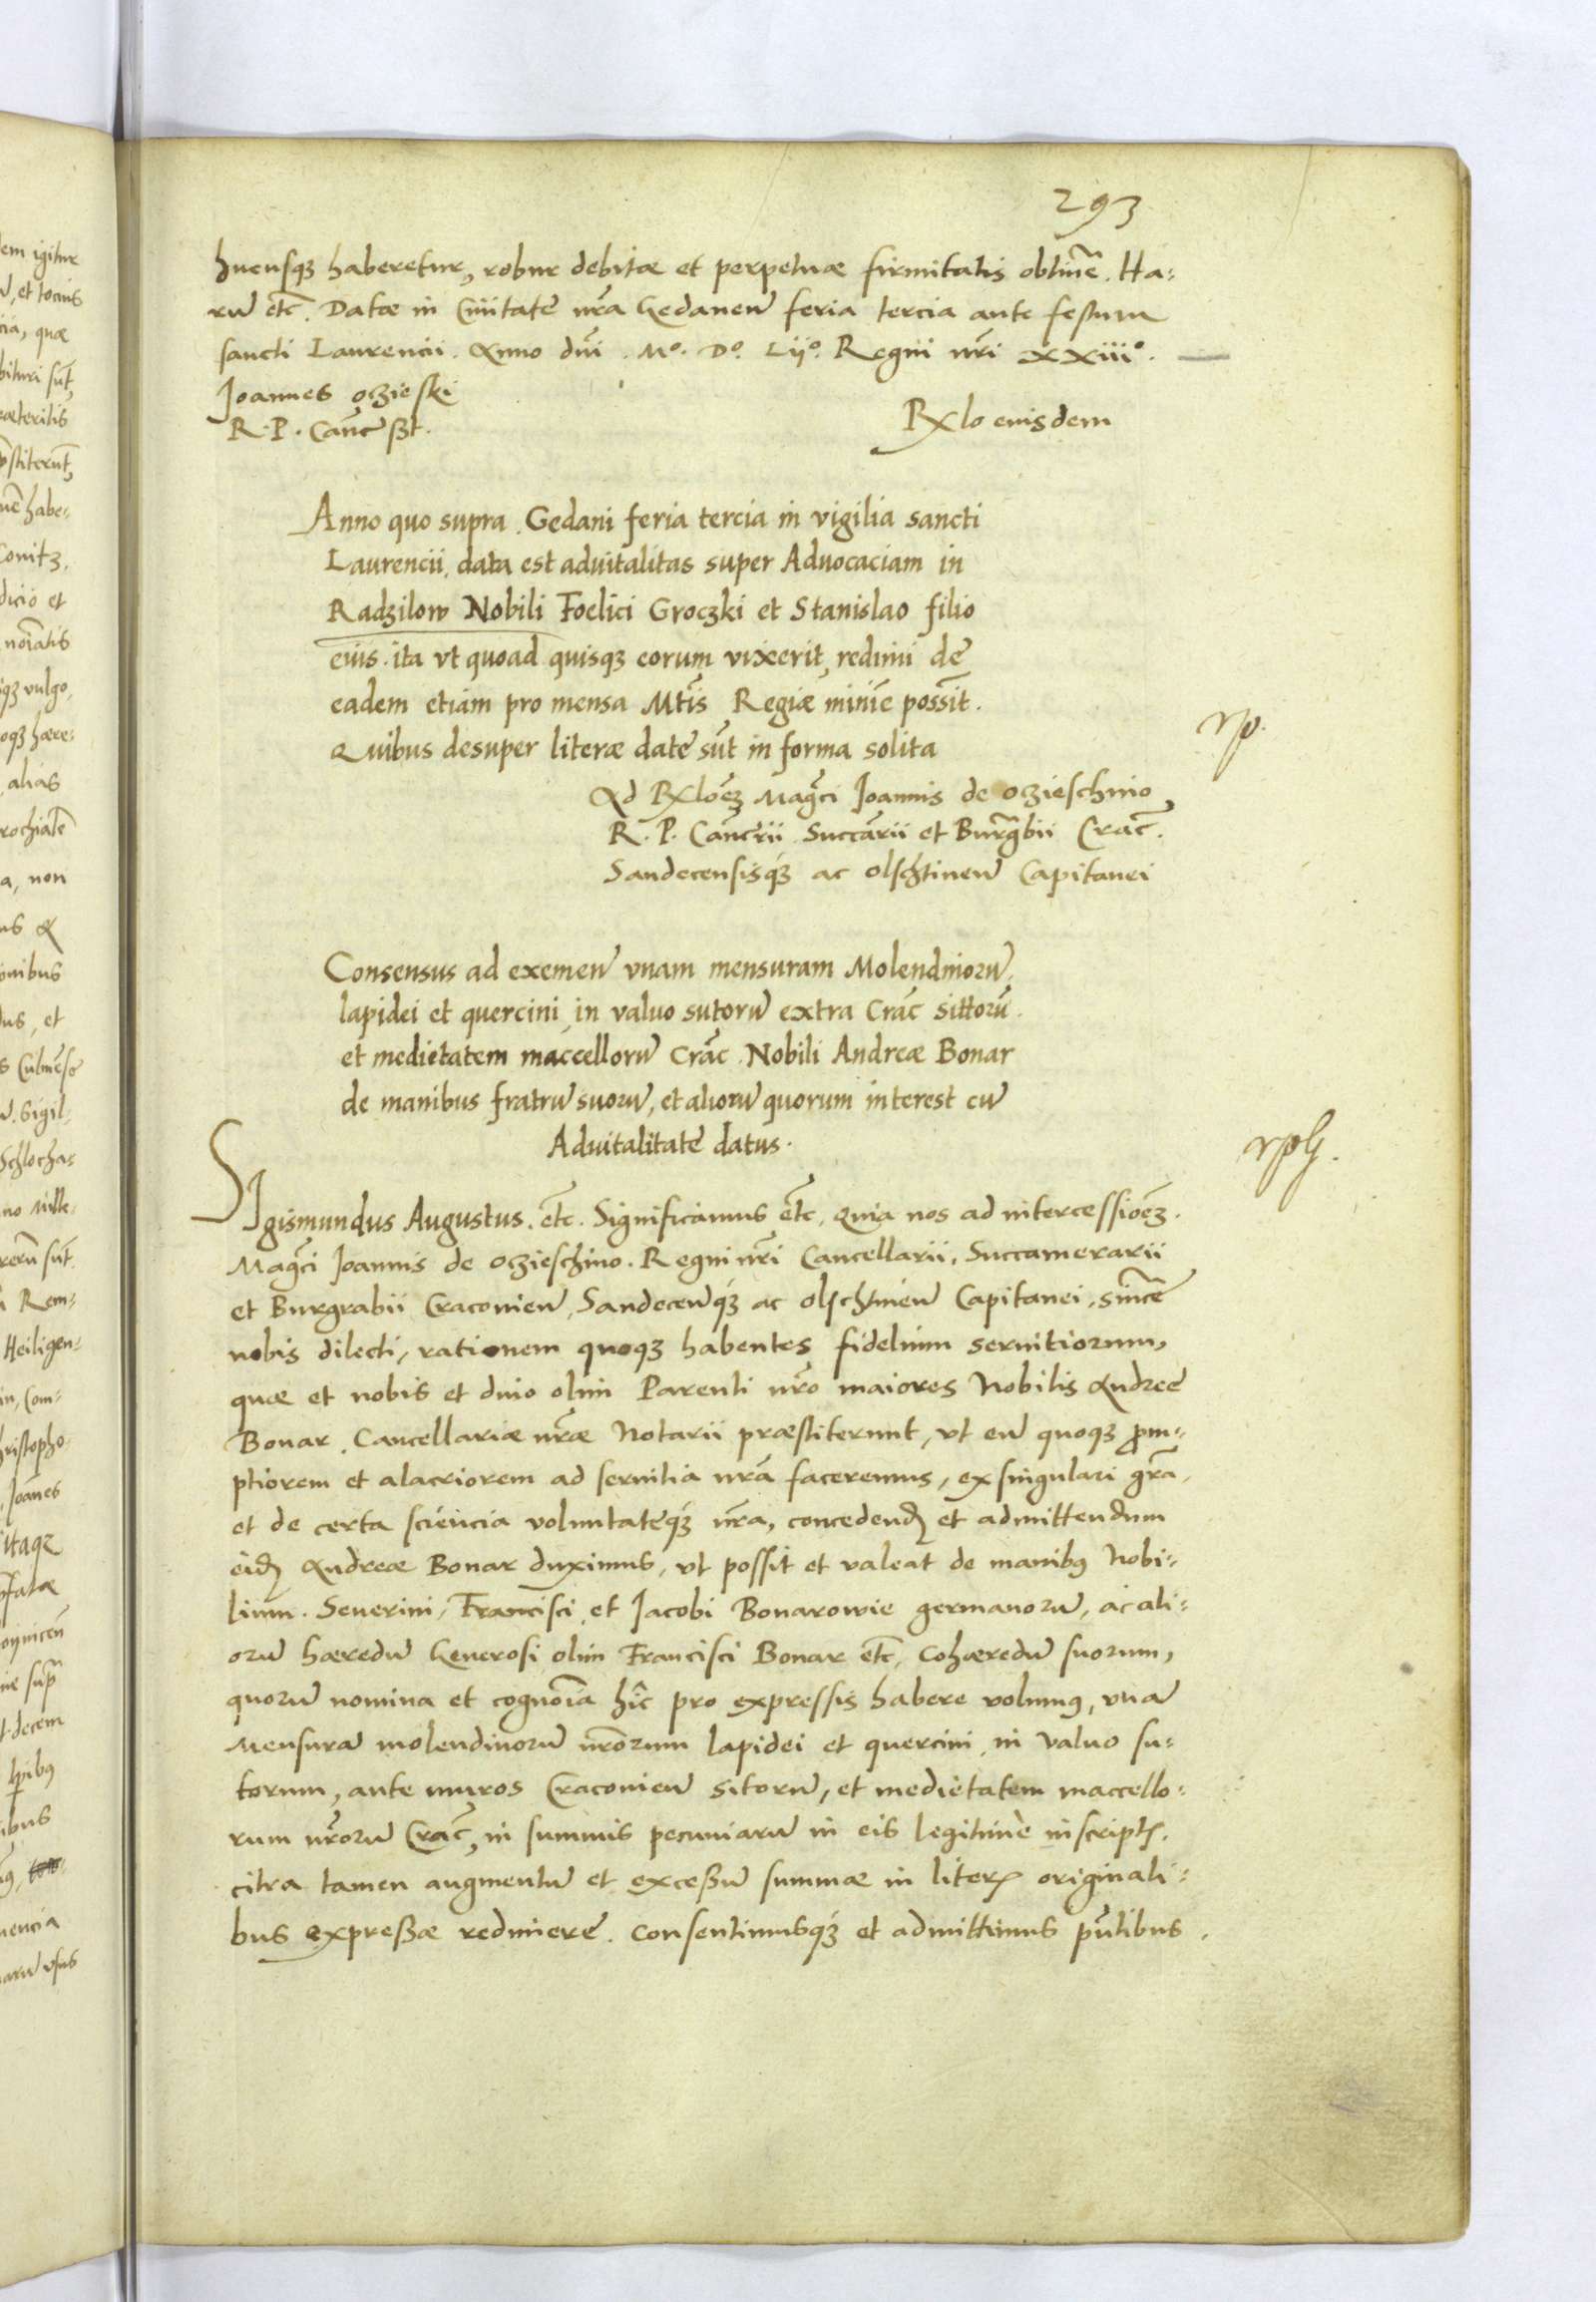 293
hucusq3 haberetur, robur debitæ et perpetuæ firmitatis obtinē. Ha-
rū etc̄. Datæ in Ciuitate nr̄a Gedanen̄ feria tercia ante festum
sancti Laurencii. Anno dn̄i. Mº. Dº. Lijº. Regni nr̄i XXiiiº.
Joannes oczieski
R. P. Canc̄ sst.
Rxlo eiusdem
Anno quo supra. Gedani feria tercia in vigilia sancti
Laurencii, data est aduitalitas super Aduocaciam in
Radzilow Nobili Foelici Groczki et Stanislao filio
eius. ita vt quoad quisq3 eorum vixerit, redimi de
eadem etiam pro mensa Mtīs Regiæ minīe possīt.
Quibus desuper literæ date sūt in forma solita
Ad Rxloēz Magcī Joannis de oczieschino
R. P. Cancrii Succārii et Burgrābii Crac̄.
Sandecensisq3 ac olschtinen̄ Capitanei
Consensus ad exemen̄ vnam mensuram Molendinorū,
lapidei et quercini, in valuo sutorū extra Crac̄ sittorū.
et medietatem maccellorū Crac̄. Nobili Andreæ Bonar
de manibus fratrū suorū, et aliorū quorum interest cū
Aduitalitate datus.
SIgismundus Augustus. etc̄. Significamus etc̄, quia nos ad intercessioēz.
Magcī Joannis de oczieschino. Regni nr̄i Cancellarii, Succamerarii
et Burgrabii Craconien̄, Sandecen̄q3 ac olschtinen̄ Capitanei, sincē
nobis dilecti, rationem quoq3 habentes fidelium seruitiorum,
quæ et nobis et diuo olim Parenti nr̄o maiores Nobilis Andree
Bonar, Cancellariæ nr̄æ Notarii præstiterunt, vt eū quoque prom-
ptiorem et alacriorem ad seruitia nr̄a faceremus, ex singulari gr̄a,
et de certa scientia voluntateq3 nr̄a, concedend et admittendum
eid Andreæ Bonar duximus, vt possit et valeat de manib9 Nobi-
lium. Seuerini, Francisci et Jacobi Bonarowie germanorū, ac ali-
orū hæredū Generosi olim Francisci Bonar etc̄, Cohæredū suorum,
quorū nomina et cognoīa hîc pro expressis habere volum9, vnā
mensurā molendinorū nr̄orum lapidei et quercini, in valuo su-
torum, ante muros Craconien̄ sitorū, et medietatem maccello-
rum nr̄orū Crac̄, in summis pecuniarū in eis legitime inscript.
citra tamen augmentū et excessū summæ in liter originali-
bus expressæ redimere. Consentimusq3 et admittimus pn̄tibus.